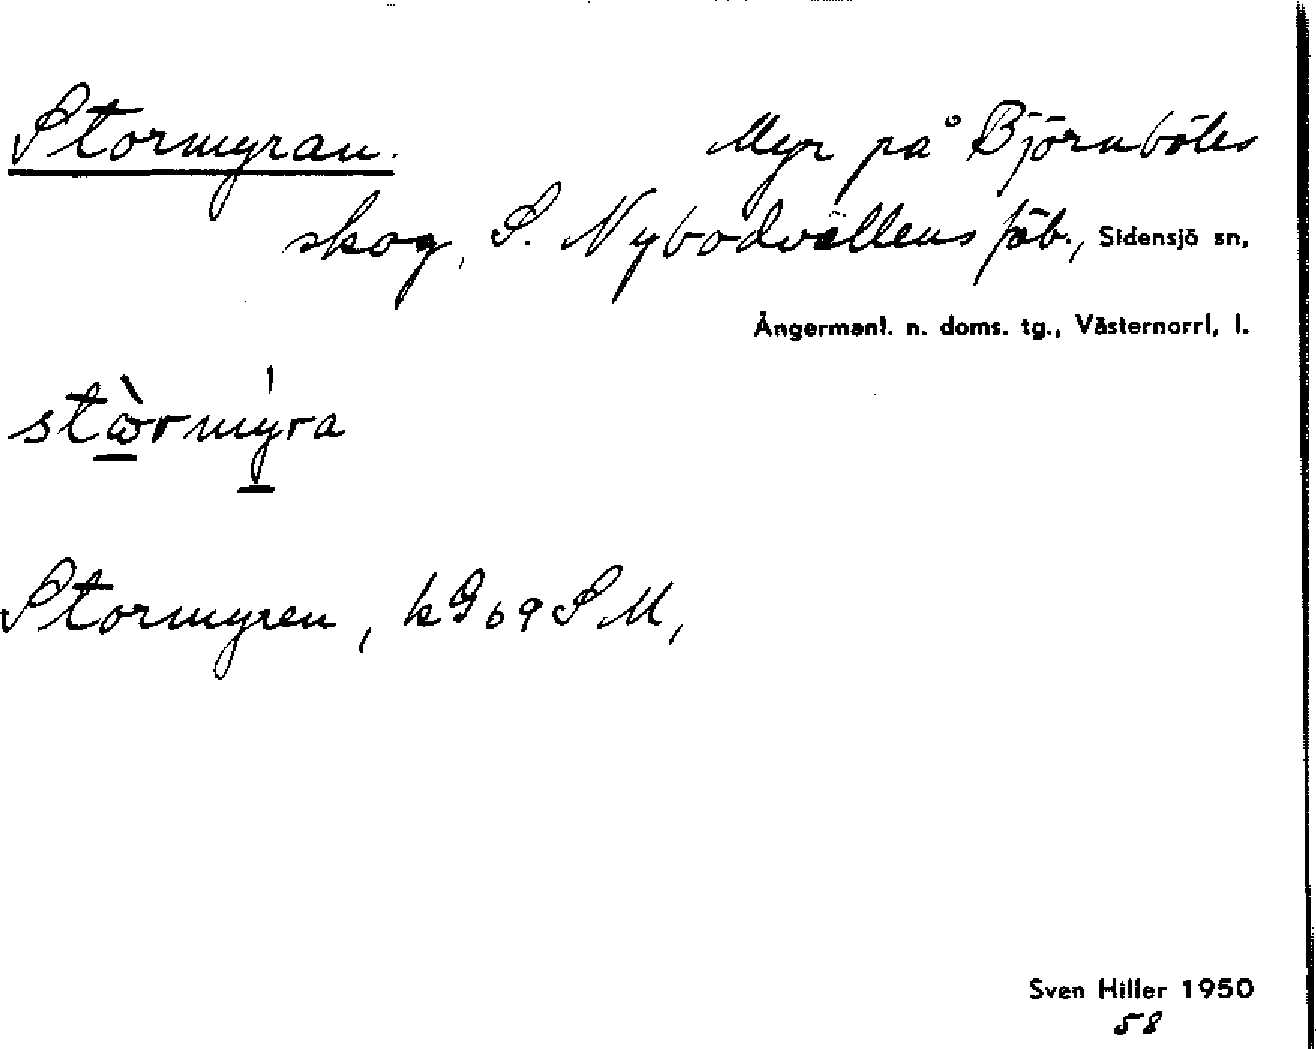 Stormyran. Myr på Björnböles
skog, S. Nybodvallens fäb., Sidensjö sn,
Ångermanl. n. doms. tg., Västernorrl. l.
stòrmy̍ra
Stormyren, k 969 SM,
Sven Hiller 1950
58